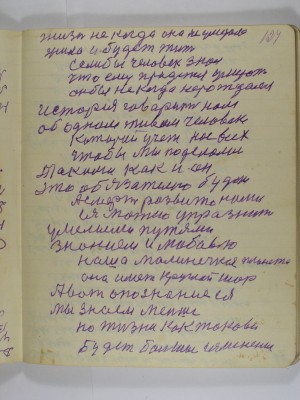 жизнь не когда она не умирала
жила и будет жить
если бы человек знал
что ему придется умирать
он бы не когда не рождался
история говорит нам
об одном живом человек
который учет нас всех
чтобы мы поделами
Такими как и он
Это обязательно будем
А смерт развить нами
её можно упразнить
умелыми путями
знанием и любовью
наша маленичкая планета
она имеет круглый шар
А вот о познание ея
мы знаем меньше
но жизни как таковой
будет больше